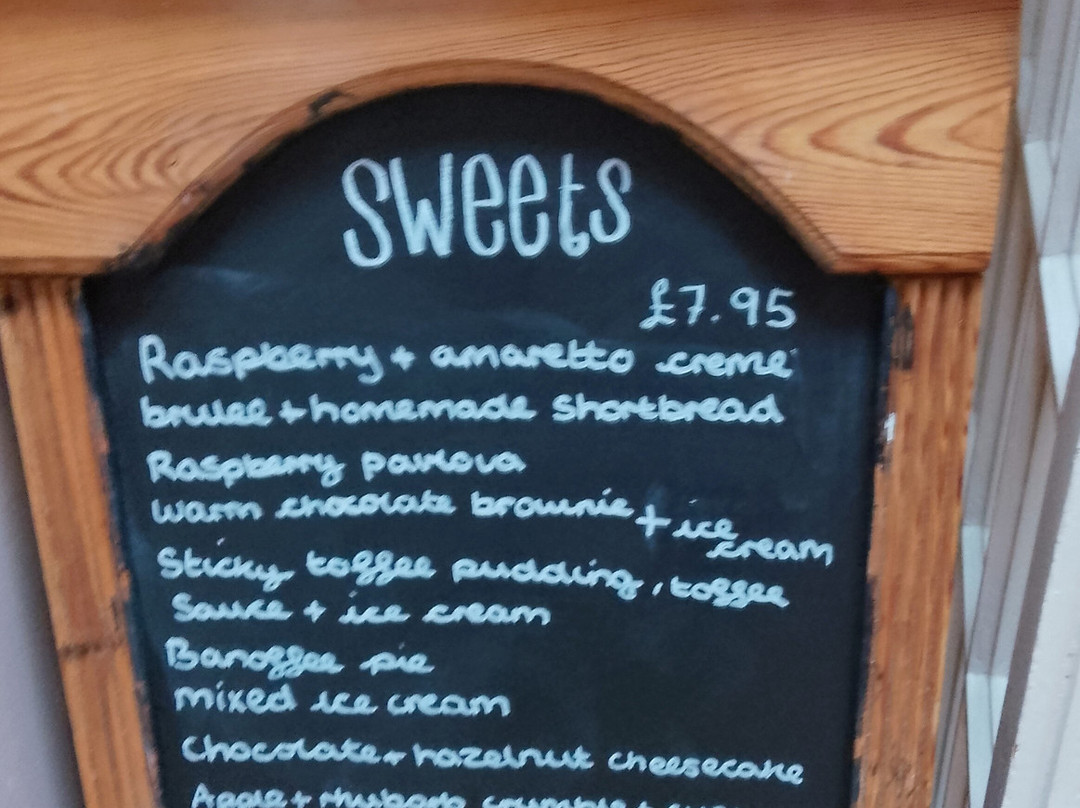 Sweets
£7.95
Raspberry + amaretto creme
brulee + homemade shortbread
Raspberry pavlova
warm chocolate brownie + ice cream
Sticky toffee pudding, toffee
Sauce + ice cream
Banoffee pie
mixed ice cream
Chocolate + hazelnut cheesecake
Apple + rhubarb crumble +